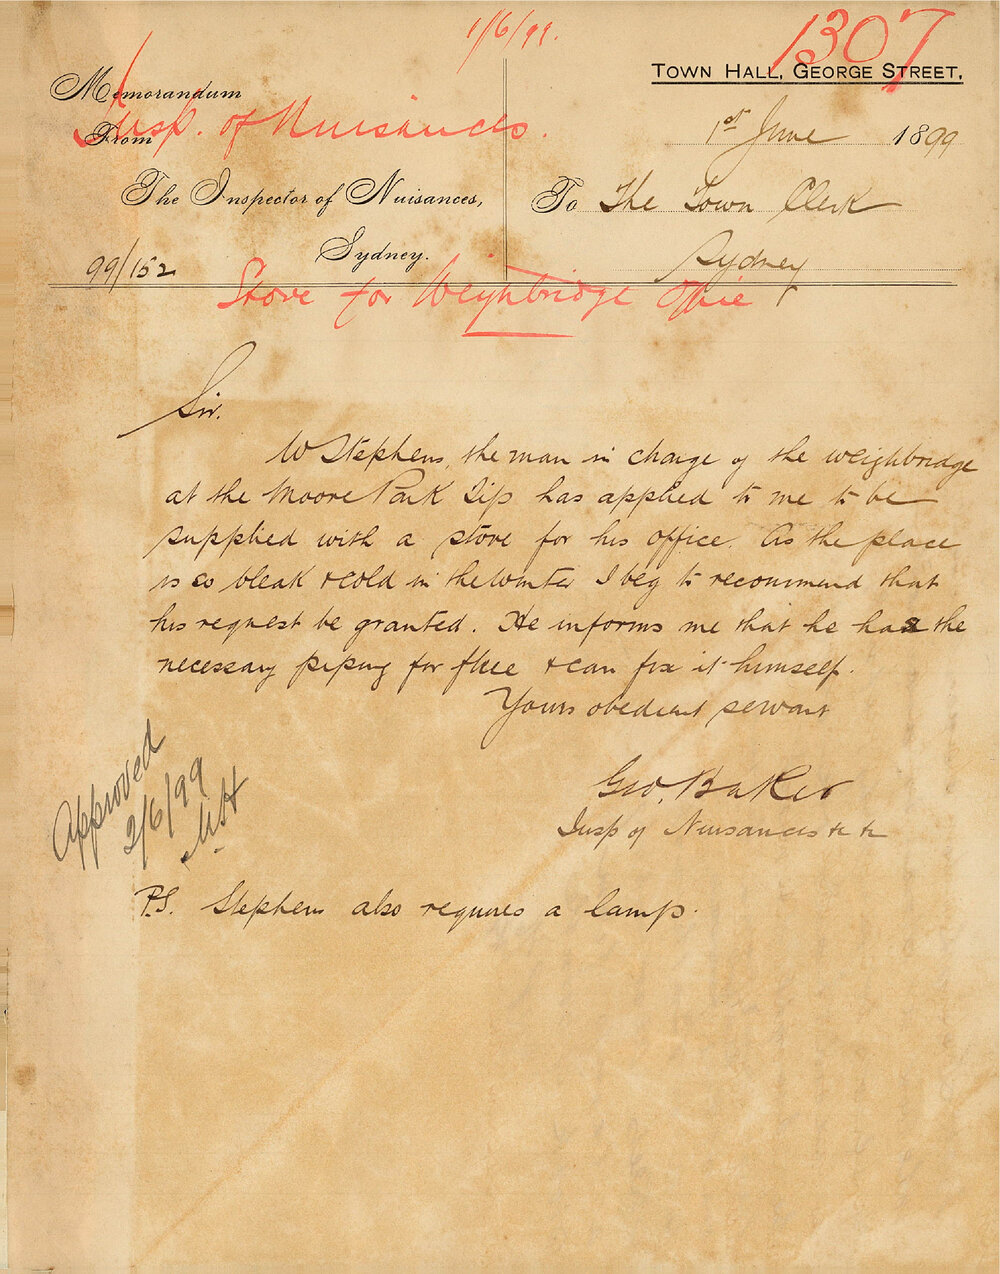 1/6/99.
1307
TOWN HALL, GEORGE STREET,
Memorandum
From
Insp. of Nuisances.
1st June 1899
The Inspector of Nuisances,
To The Town Clerk
Sydney.
Sydney
99/152
Stove for Weighbridge Office
Sir.
W Stephens, the man in charge of the weighbridge
at the Moore Park Tip has applied to me to be
supplied with a stove for his office. As the place
is so bleak & cold in the Winter I beg to recommend that
his request be granted. He informs me that he has the
necessary piping for flue & can fix it himself.
Yours obedient servant
Geo. Baker
Insp of Nuisances &c &c
Approved
2/6/99
P.S. Stephens also requires a lamp.